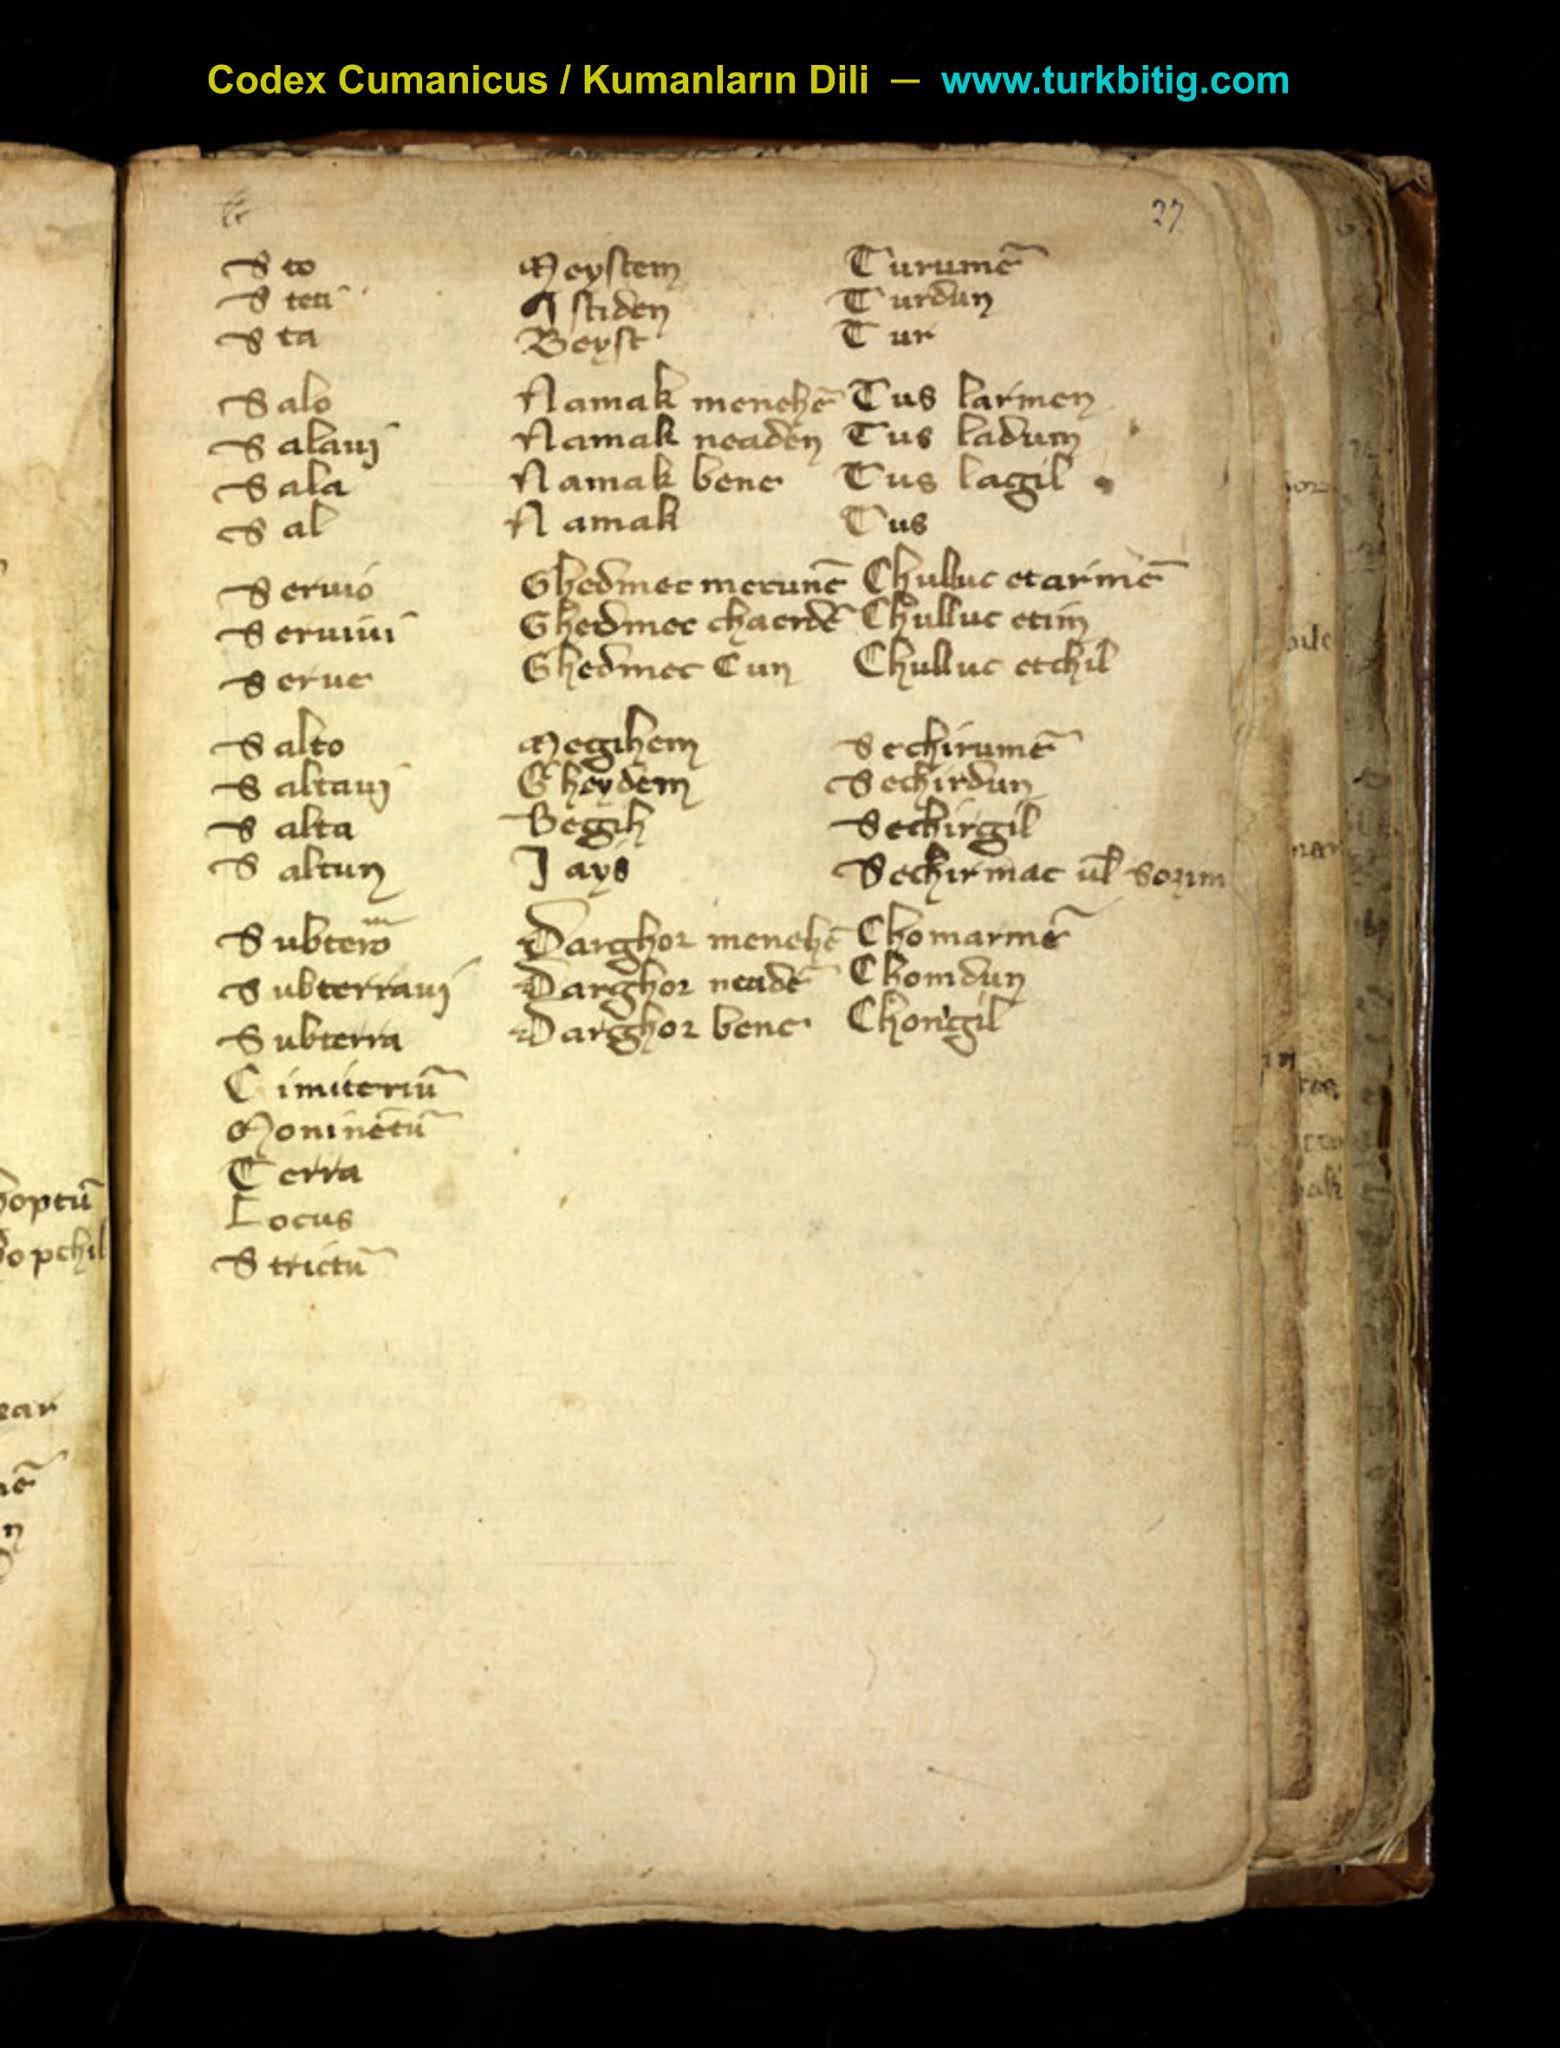 Codex Cumanicus / Kumanların Dili — www.turkbitig.com
27
Sto Meystem Turumē
Steti Astiden Turdun
Sta Beyst Tur
Salo Namak menehē Tus larmen
Salaui Namak neaden Tus ladum
Sala Namak bene Tus lagil
Sal Namak Tus
Seruio Ghedmec mecunē Chulluc etarmē
Seruiui Ghedmec chaerdē Chulluc etim
Serue Ghedmec Cun Chulluc etchil
Salto Megihem Sechirumē
Saltaui Gheydem Sechirdun
Salta Begih Sechirgil
Saltun Jays Sechirmac ul
Subtero Darghor menehē Chomarmē
Subterraui Darghor neadē Chomdun
Subterra Darghor bene Chongil
Cimiteriū
Moninētū
Terra
Locus
Strictū